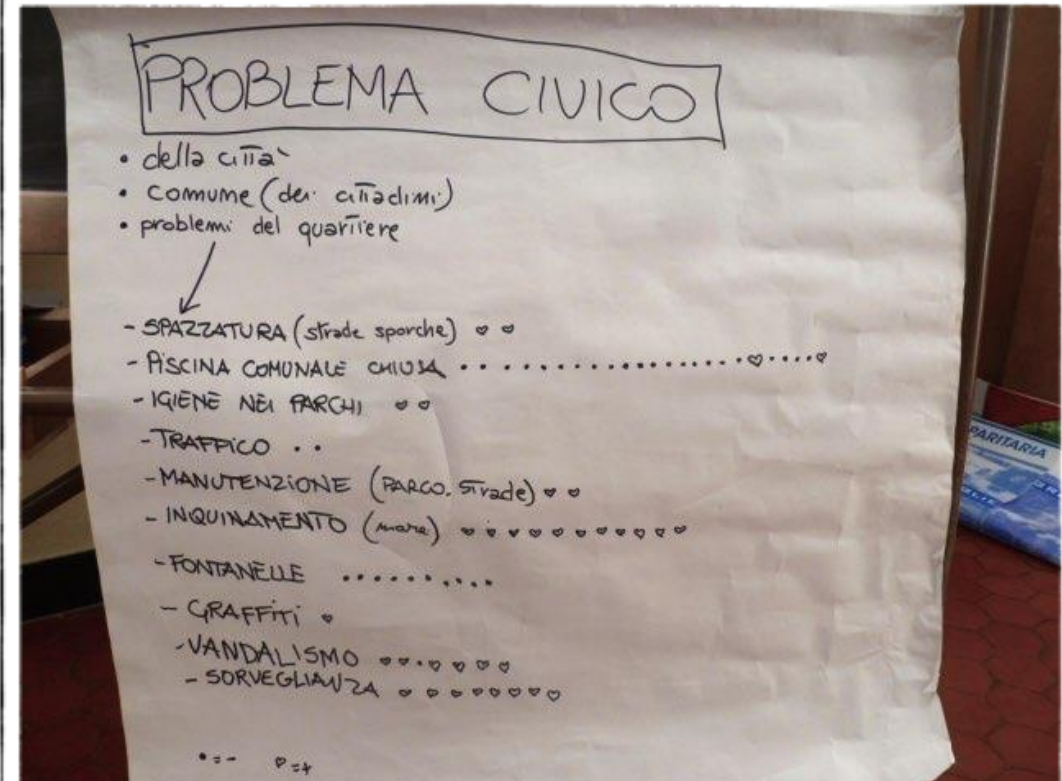 PROBLEMA CIVICO
• della città
• comune (dei cittadini)
• problemi del quartiere
- SPAZZATURA (strade sporche) ♡ ♡
- PISCINA COMUNALE CHIUSA • • • • • • • • • • • • • • • • • • ♡ • • • • ♡
- IGIENE NEI PARCHI ♡ ♡
- TRAFFICO • •
- MANUTENZIONE (PARCO. strade) ♡ ♡
- INQUINAMENTO (mare) ♡ • ♡ ♡ ♡ ♡ ♡ ♡ ♡ ♡ ♡
- FONTANELLE • • • • • • • • • •
- GRAFFITI ♡
- VANDALISMO ♡ ♡ • ♡ ♡ ♡ ♡
- SORVEGLIANZA ♡ ♡ ♡ ♡ ♡ ♡ ♡ ♡ ♡
• = - ♡ = +
PARITARIA